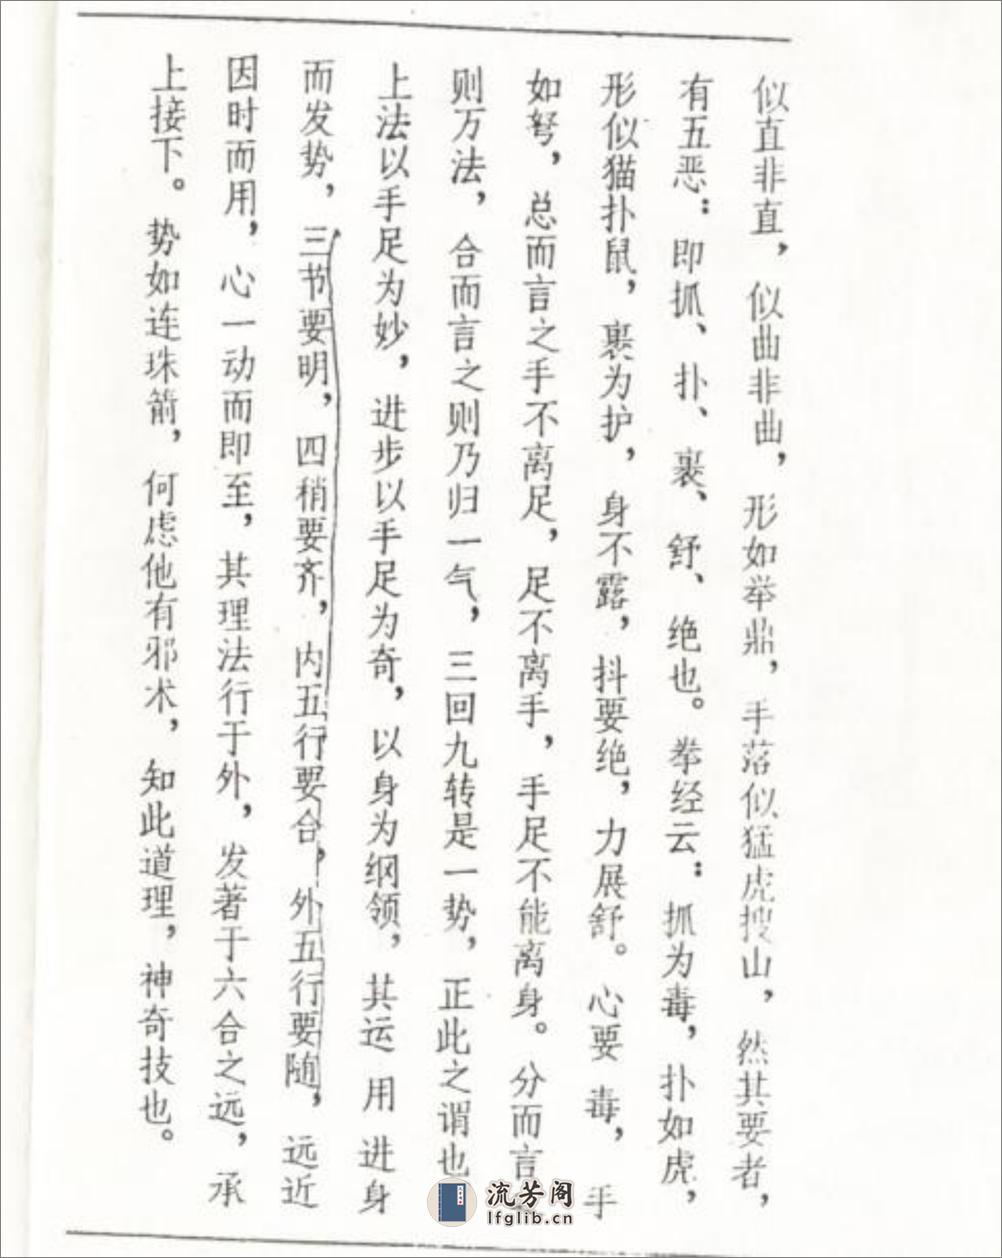 似直非直，似曲非曲，形如举鼎，手落似猛虎搜山，然其要者，
有五恶：即抓、扑、裹、舒、绝也。拳经云：抓为毒，扑如虎，
形似猫扑鼠，裹为护，身不露，抖要绝，力展舒。心要毒，手
如弩，总而言之手不离足，足不离手，手足不能离身。分而言
则万法，合而言之则乃归一气，三回九转是一势，正此之谓也
上法以手足为妙，进步以手足为奇，以身为纲领，其运用进身
而发势，三节要明，四稍要齐，内五行要合，外五行要随，远近
因时而用，心一动而即至，其理法行于外，发著于六合之远，承
上接下。势如连珠箭，何虑他有邪术，知此道理，神奇技也。
流芳阁
lfglib.cn